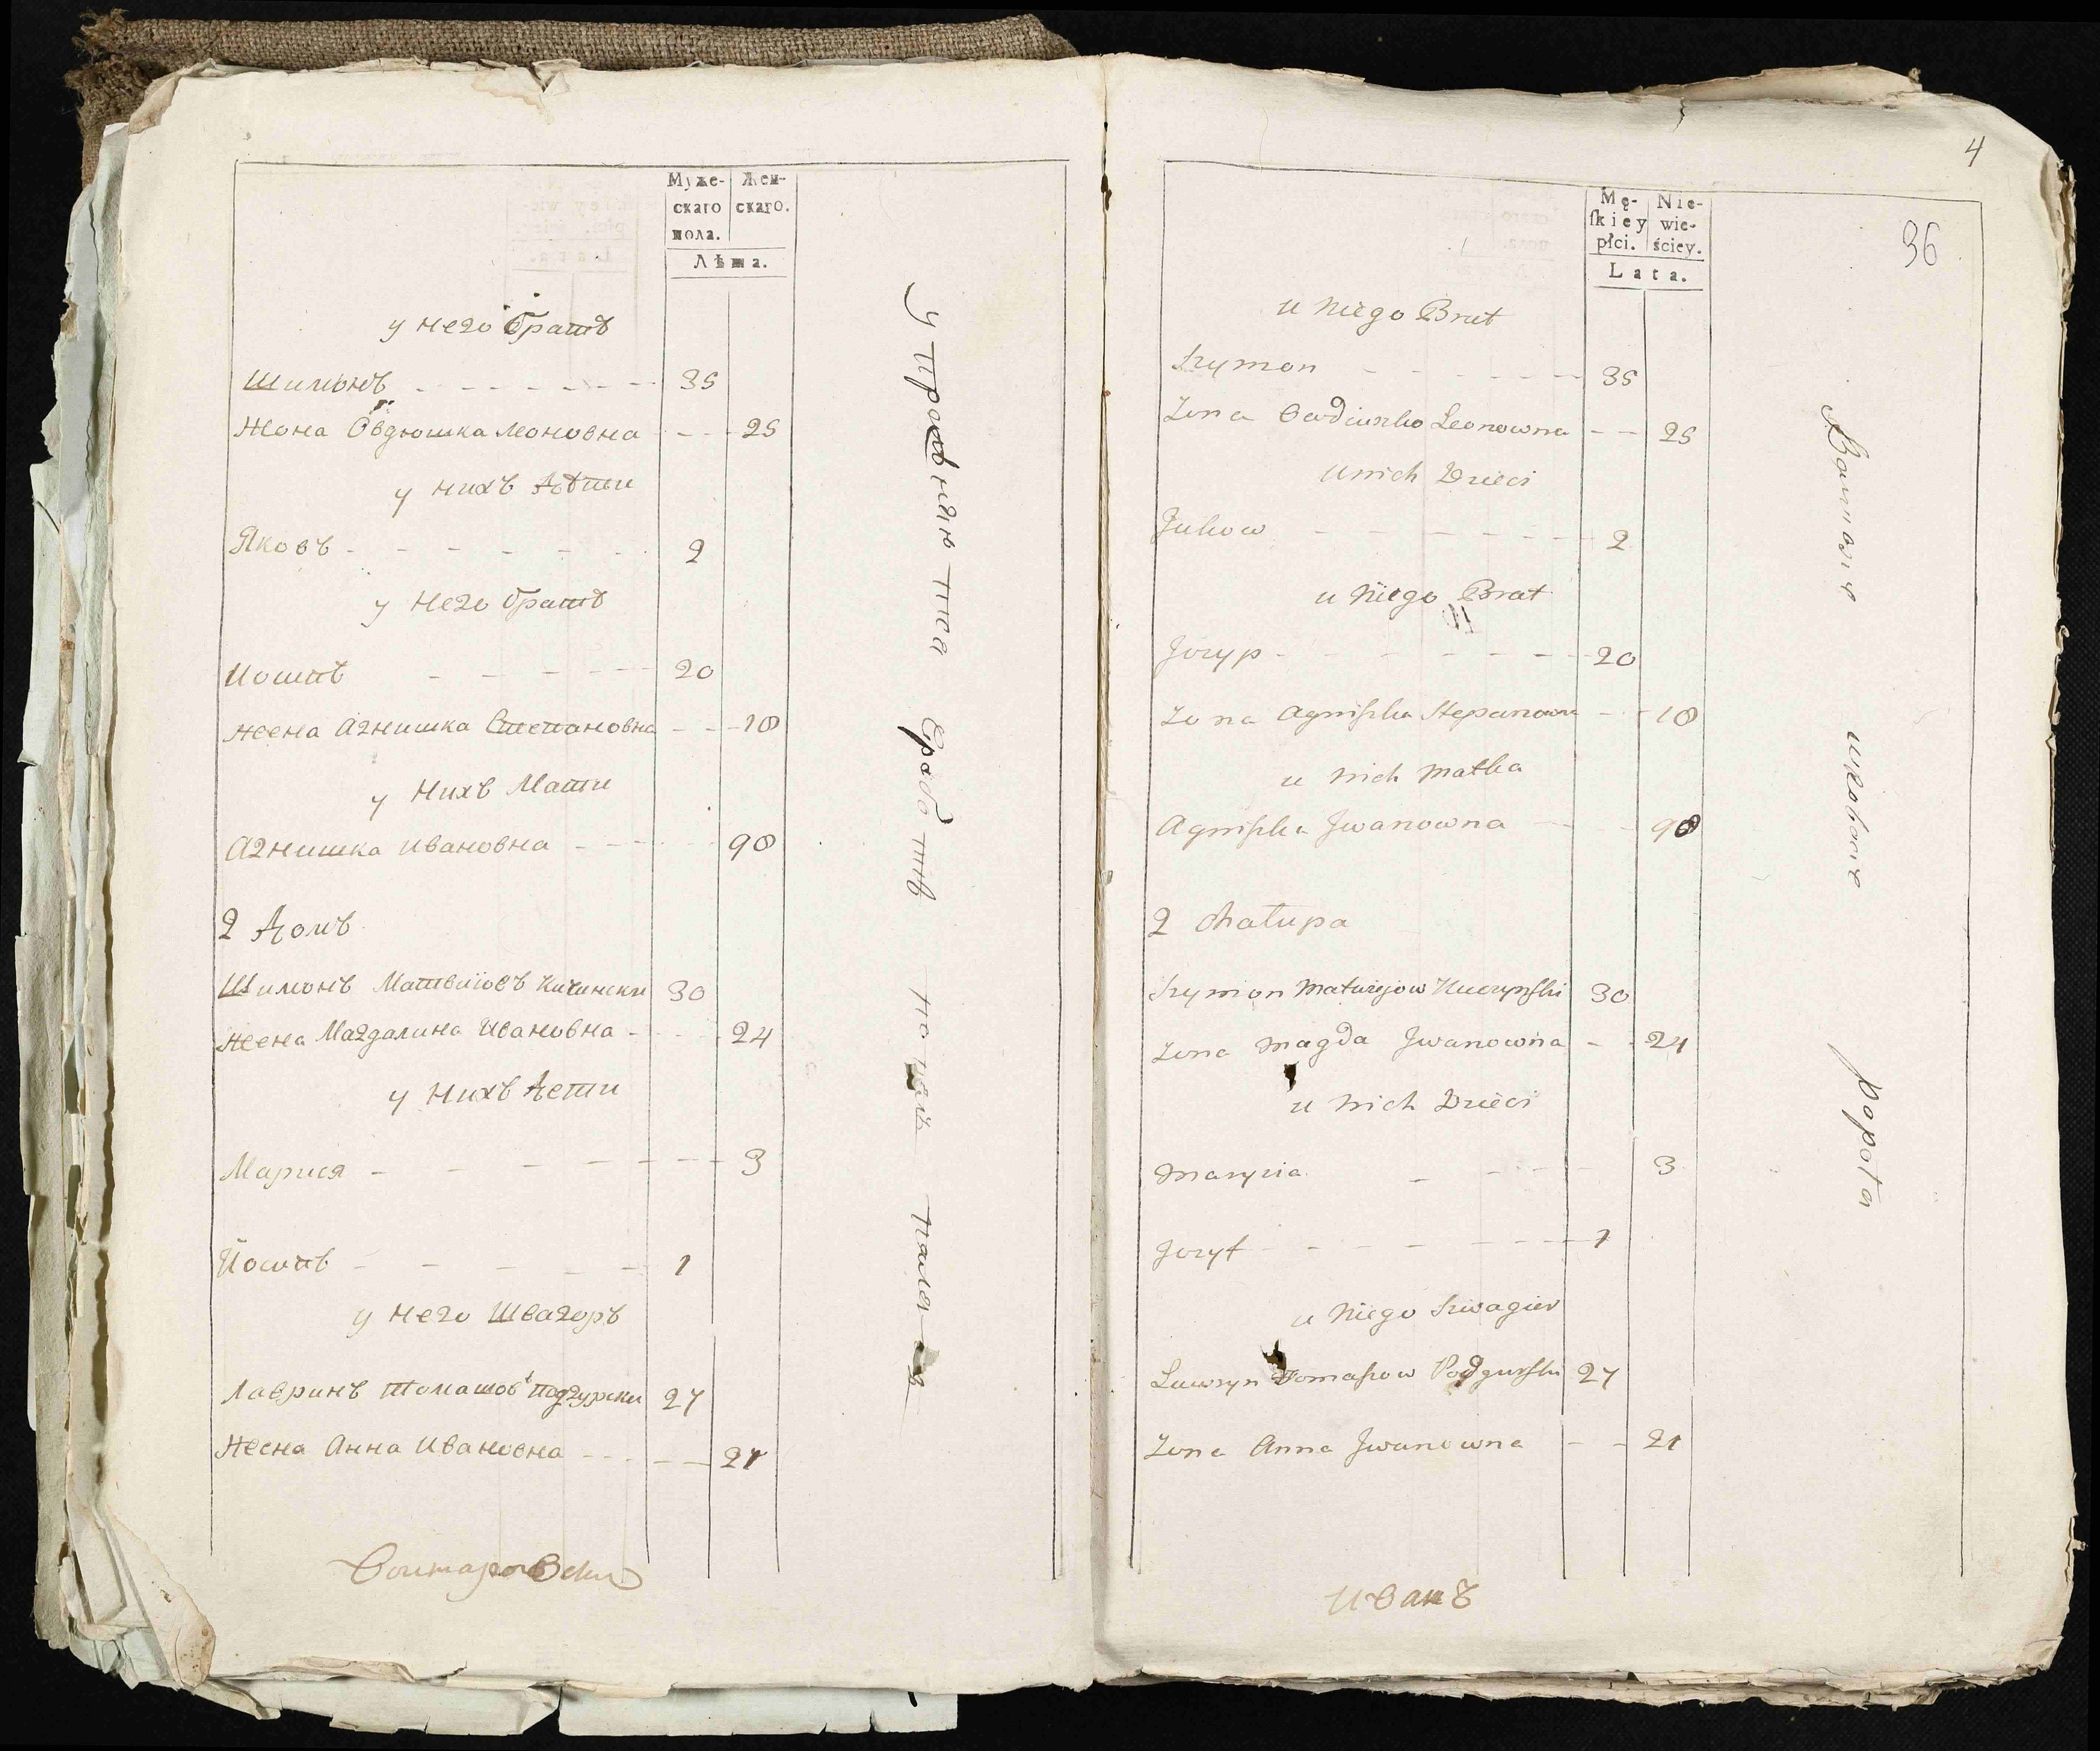 Муже- Жен-
скаго скаго.
пола.
Лѣта.
у него братъ
Шимонъ 35
Жона Овдюшка Лєоновна 25
у нихъ дѣти
Яковъ 2
у него братъ
Иосипъ 20
жена Агнишка Степановна 18
у нихъ мати
Агнишка Ивановна 98
2 Домъ
Шимонъ Матвиiовъ Кичински 30
жена Магдалина Ивановна 24
у нихъ дети
Марися 3
Йосипъ 1
у него швагоръ
Лавринъ Томашовъ Подгурски 27
Жена Анна Ивановна 21
4
36
Mę- Nie-
ſkiey wie-
płci. ściey.
Lata.
u niego Brat
Szymon 35
Zona Owdiuszka Leonowna 25
u nich Dzieci
Jakow 2
u niego Brat
Jozyp 20
Zona Agniſzka Stepanowna 18
u nich matka
Agniſzka Jwanowna 98
2 Chałupa
Szymon Matwijow Kuczynſki 30
Zona Magda Jwanowna 24
u nich Dzieci
Marysia 3
Jozyf 1
u niego Szwagier
Ławryn Tomaſzow Podgurſki 27
Zona Anna Jwanowna 21
Иванъ